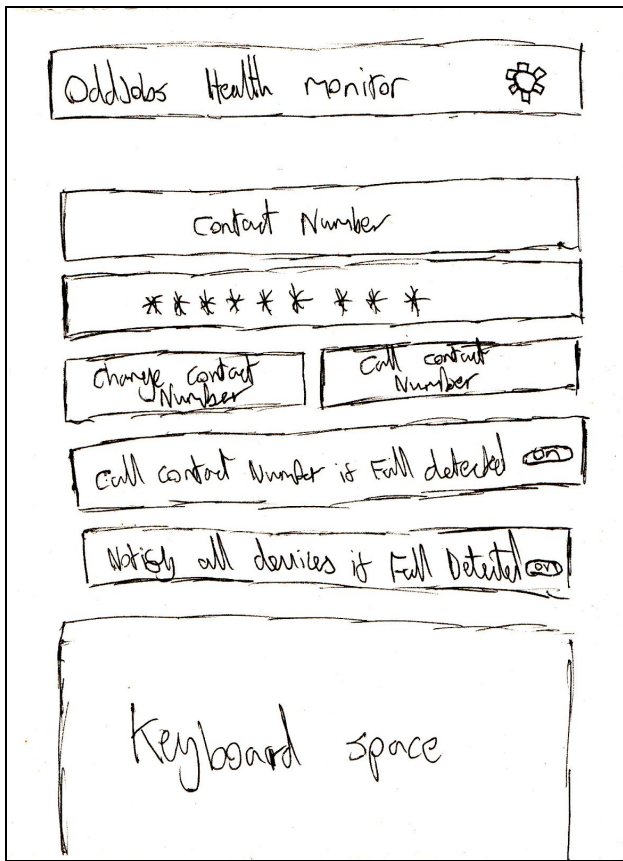 OddJobs Health monitor
Contact Number
* * * * * * * * *
Change contact
Number
Call contact
Number
Call contact Number if Fall detected on
Notify all devices if Fall Detected on
Keyboard space